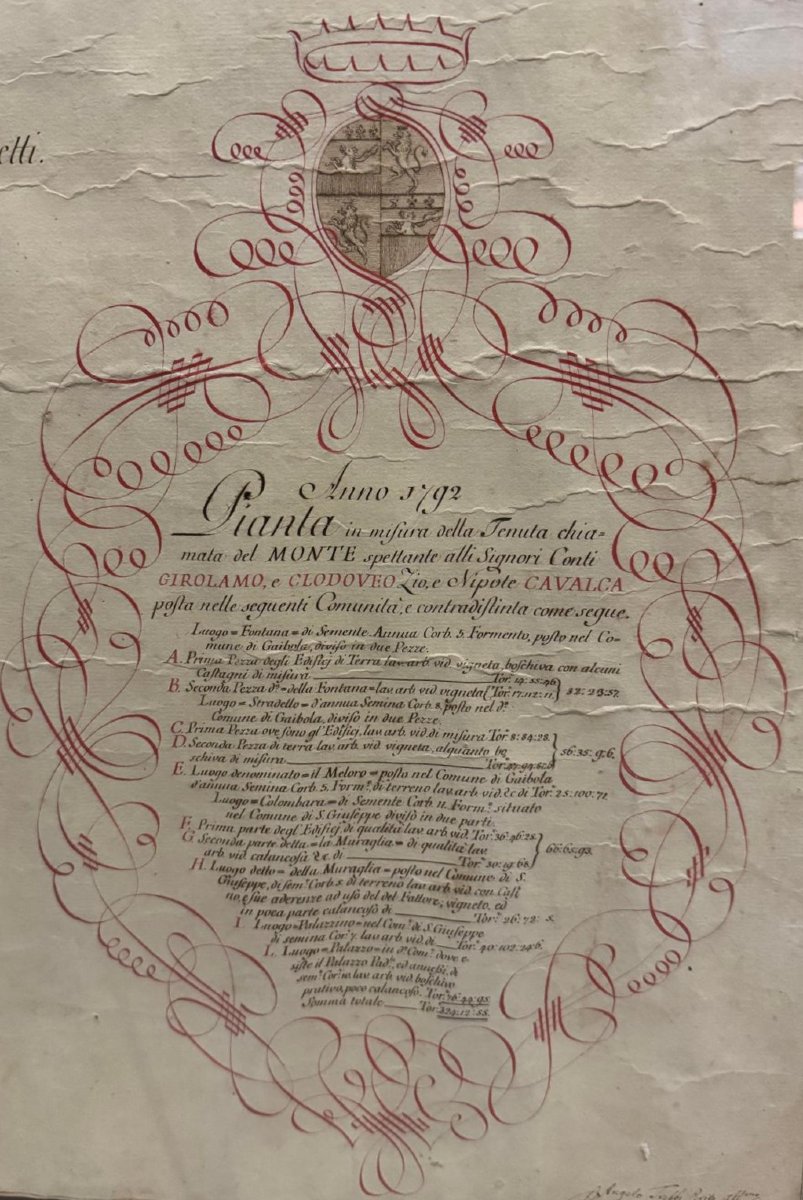 etti.
Anno 1792
Pianta in misura della Tenuta chia=
mata del MONTE spettante alli Signori Conti
GIROLAMO, e CLODOVEO Zio, e Nipote CAVALCA
posta nelle seguenti Comunità, e contradistinta come segue.
Luogo = Fontana = di Semente Annua Corb. 5. Formento, posto nel Co=
mune di Gaibola, diviso in due Pezze.
A. Prima Pezza degli Edificj di Terra lav. arb. vid. vigneta, boschiva con alcuni
Castagni di misura Tor. 14:55:46
B. Seconda Pezza d.ª = della Fontana = lav. arb. vid. vigneta Tor. 17:112:11. 32:23:57.
Luogo = Stradello = d'annua Semina Corb. 8. posto nel d.º
Comune di Gaibola, diviso in due Pezze.
C. Prima Pezza ove sono gl'Edificj, lav. arb. vid. di misura Tor. 8:84:28.
D. Seconda Pezza di terra lav. arb. vid. vigneta, alquanto bo 56:35:96.
schiva di misura Tor.
E. Luogo denominato = il Meloro = posto nel Comune di Gaibola
d'annua Semina Corb. 5. Form.º di terreno lav. arb. vid. &c. di Tor. 25:100:71.
Luogo = Colombara = di Semente Corb. 11. Form.º situato
nel Comune di S. Giuseppe diviso in due parti.
F. Prima parte degl'Edificj di qualità lav. arb. vid. Tor. 36:46:25.
G. Seconda parte detta = la Muraglia = di qualità lav. 66:65:93.
arb. vid. calancosa &c. di Tor. 30:19:68.
H. Luogo detto = della Muraglia = posto nel Comune di S.
Giuseppe, di sem.ª Corb. 8. di terreno lav. arb. vid. con Cass
no, e sue aderenze ad uso del Fattore, vigneto, ed
in poca parte calancoso di Tor. 26:72: 5.
I. Luogo = Palazzino = nel Com.e di S. Giuseppe
di semina Cor. 7. lav. arb. vid. di Tor. 40:102:246.
L. Luogo = Palazzo = in d.º Com.e dove e=
siste il Palazzo Pad.e, ed annessi, di
sem.ª Cor. 10. lav. arb. vid. boschivo
prativo, poco calancoso. Tor. 76:44:95
Somma totale Tor. 324:12:88.
Angelo